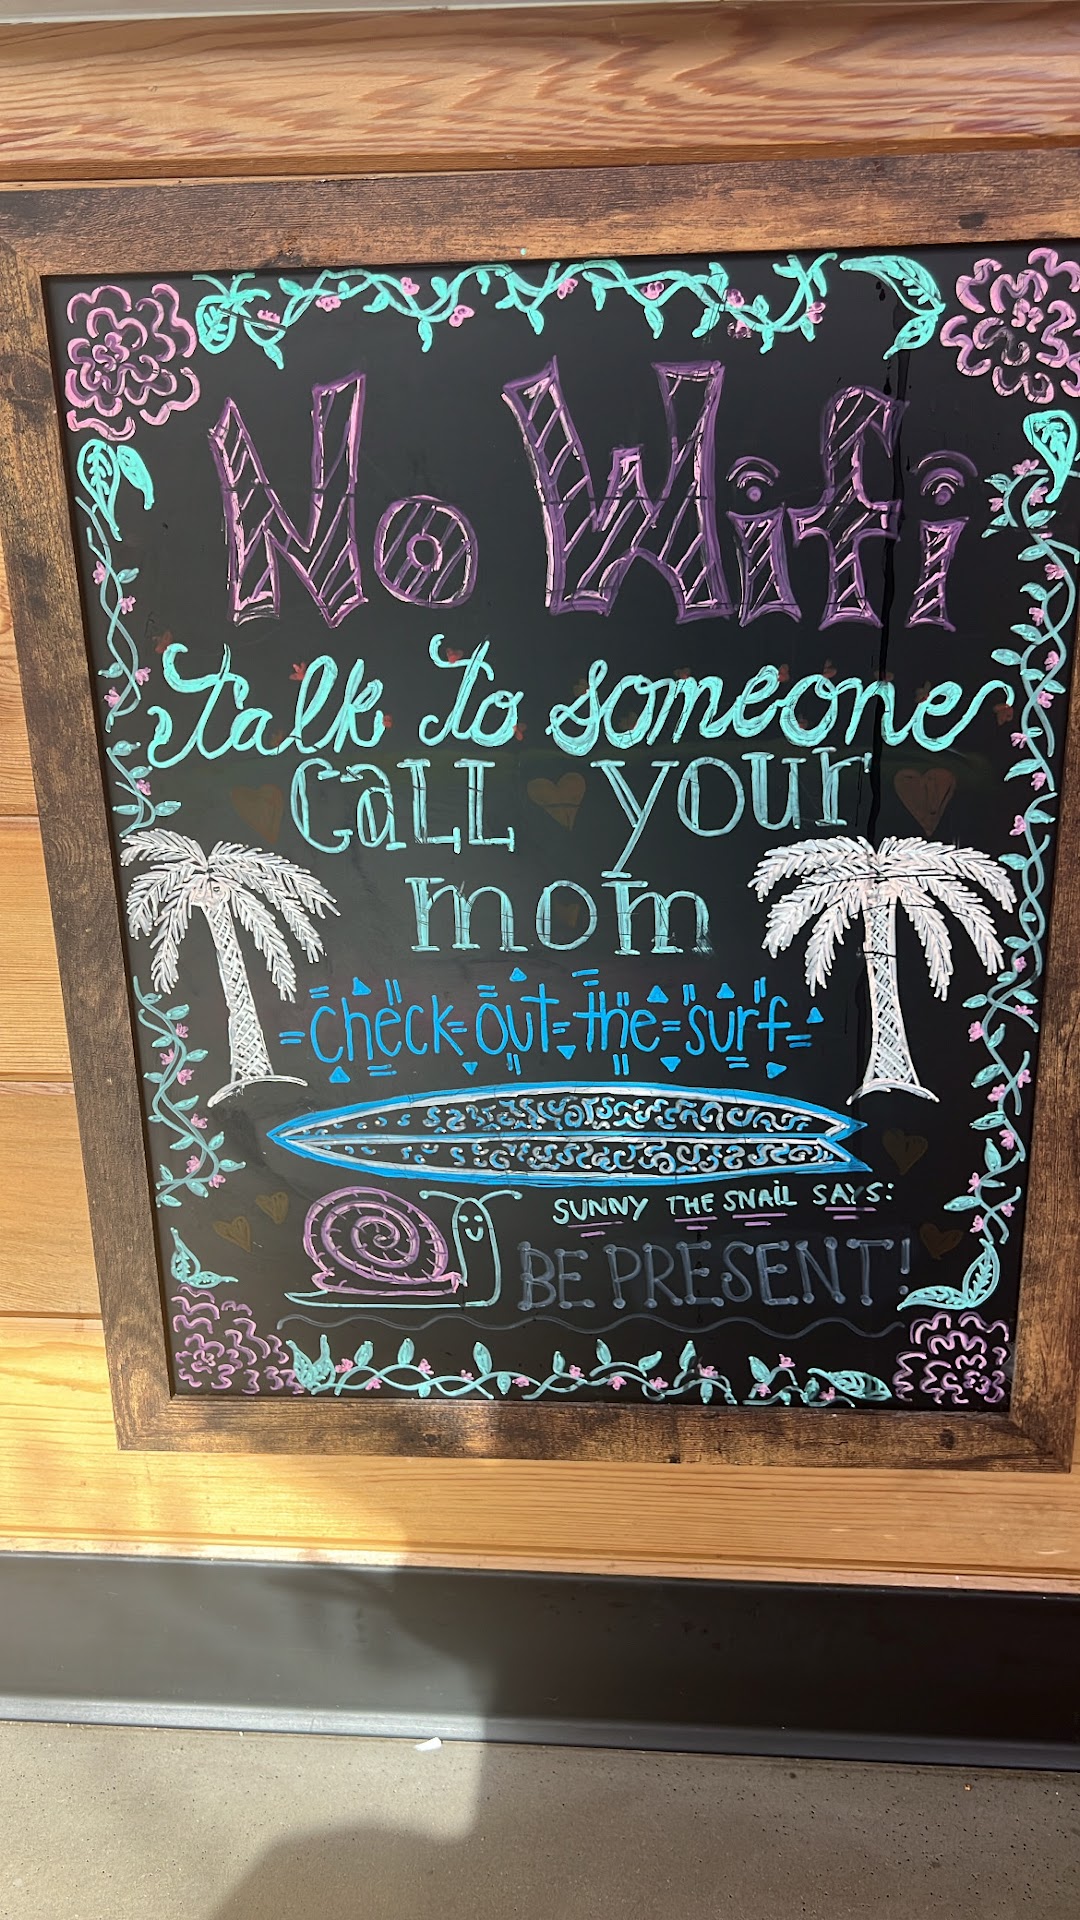 No Wifi
talk to someone
Call your
mom
check out the surf
SUNNY THE SNAiL SAYS:
BE PRESENT!